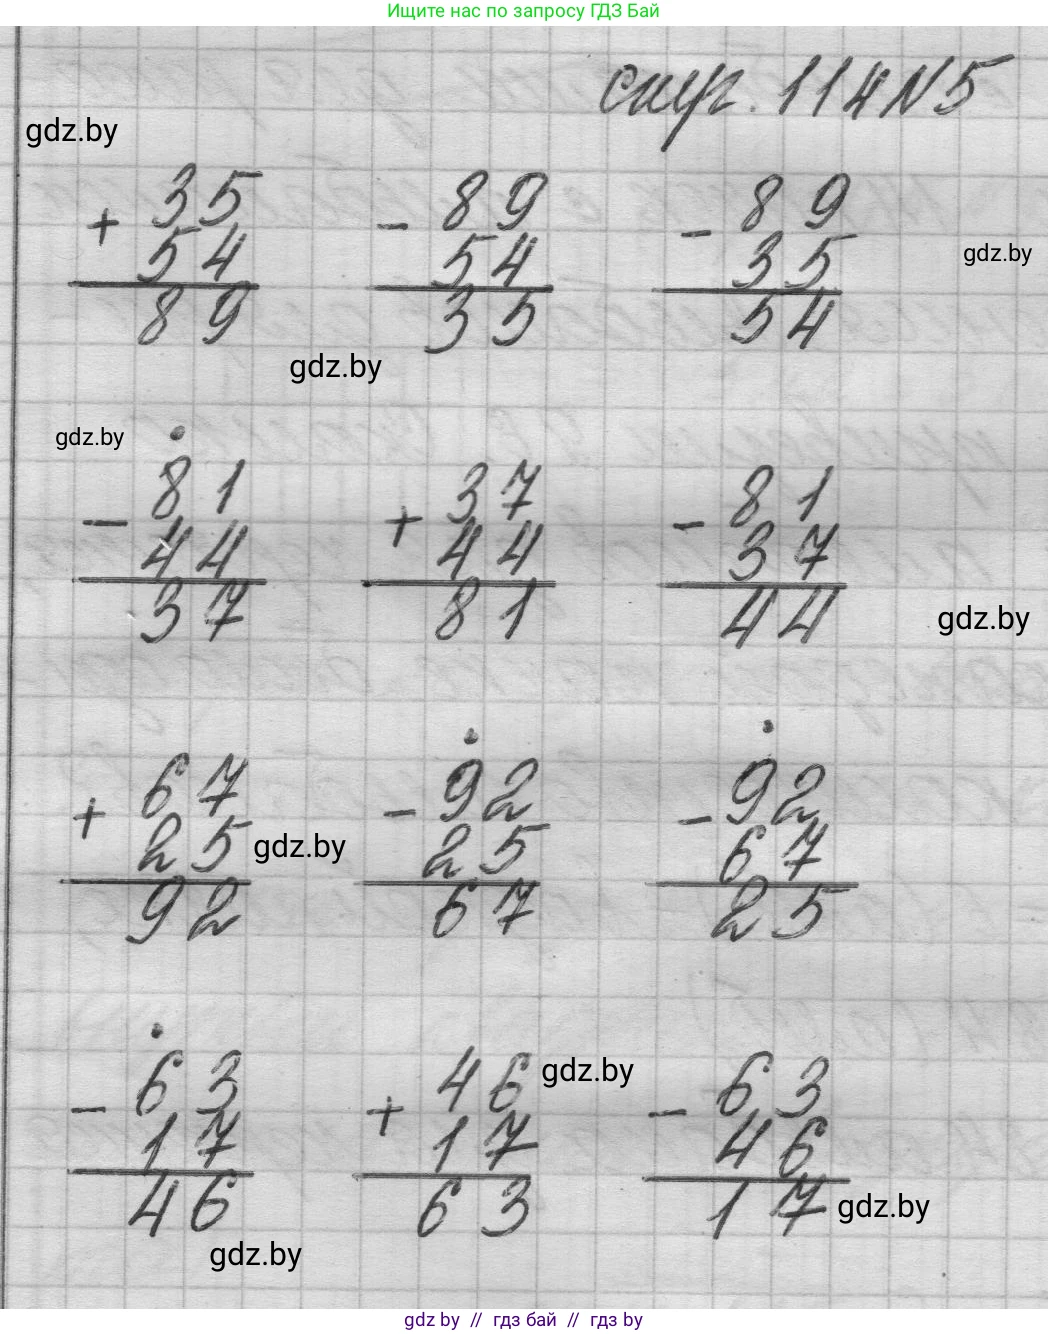 Ищите нас по запросу ГДЗ Бай
стр. 114 N5
gdz.by
+ 35 - 89 - 89
54 54 35
89 35 54
gdz.by
gdz.by
gdz.by
- 81 + 37 - 81
44 44 37
37 81 44
gdz.by
+ 67 - 92 - 92
25 25 67
92 67 25
gdz.by
- 63 + 46 - 63
17 17 46
46 63 17
gdz.by
gdz.by
gdz.by
gdz by // гдз бай // гдз by